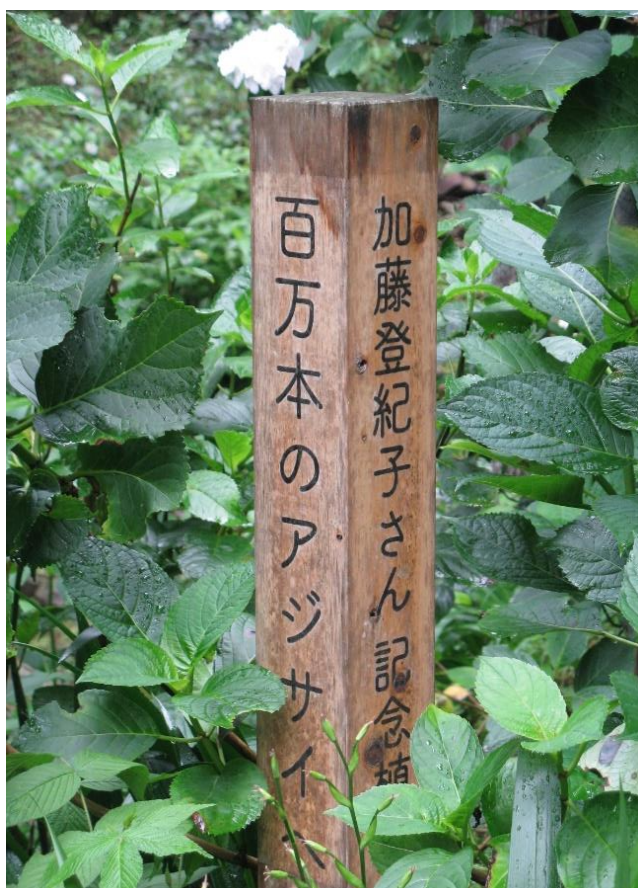 加藤登紀子さん 記念植
百万本のアジサイ